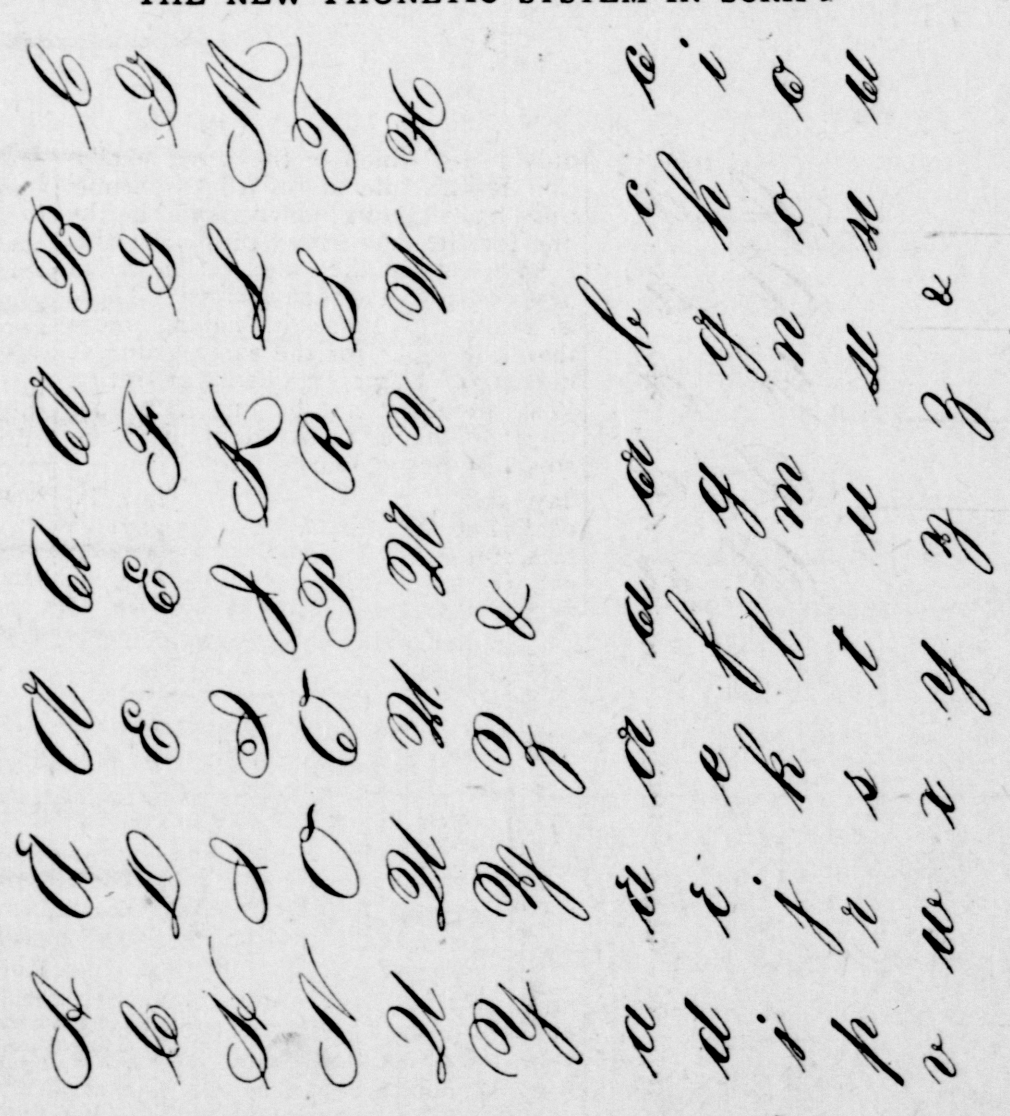 THE NEW PHONETIC SYSTEM IN SCRIPT
A A A A A B C
C D E E F G G
H I I J K L M
N O O P R S T
U U U U V W X
Y Z Z &
a a a a b c
d e f g g h i
j k l m n o
p r s t u u u u
v w x y z z &